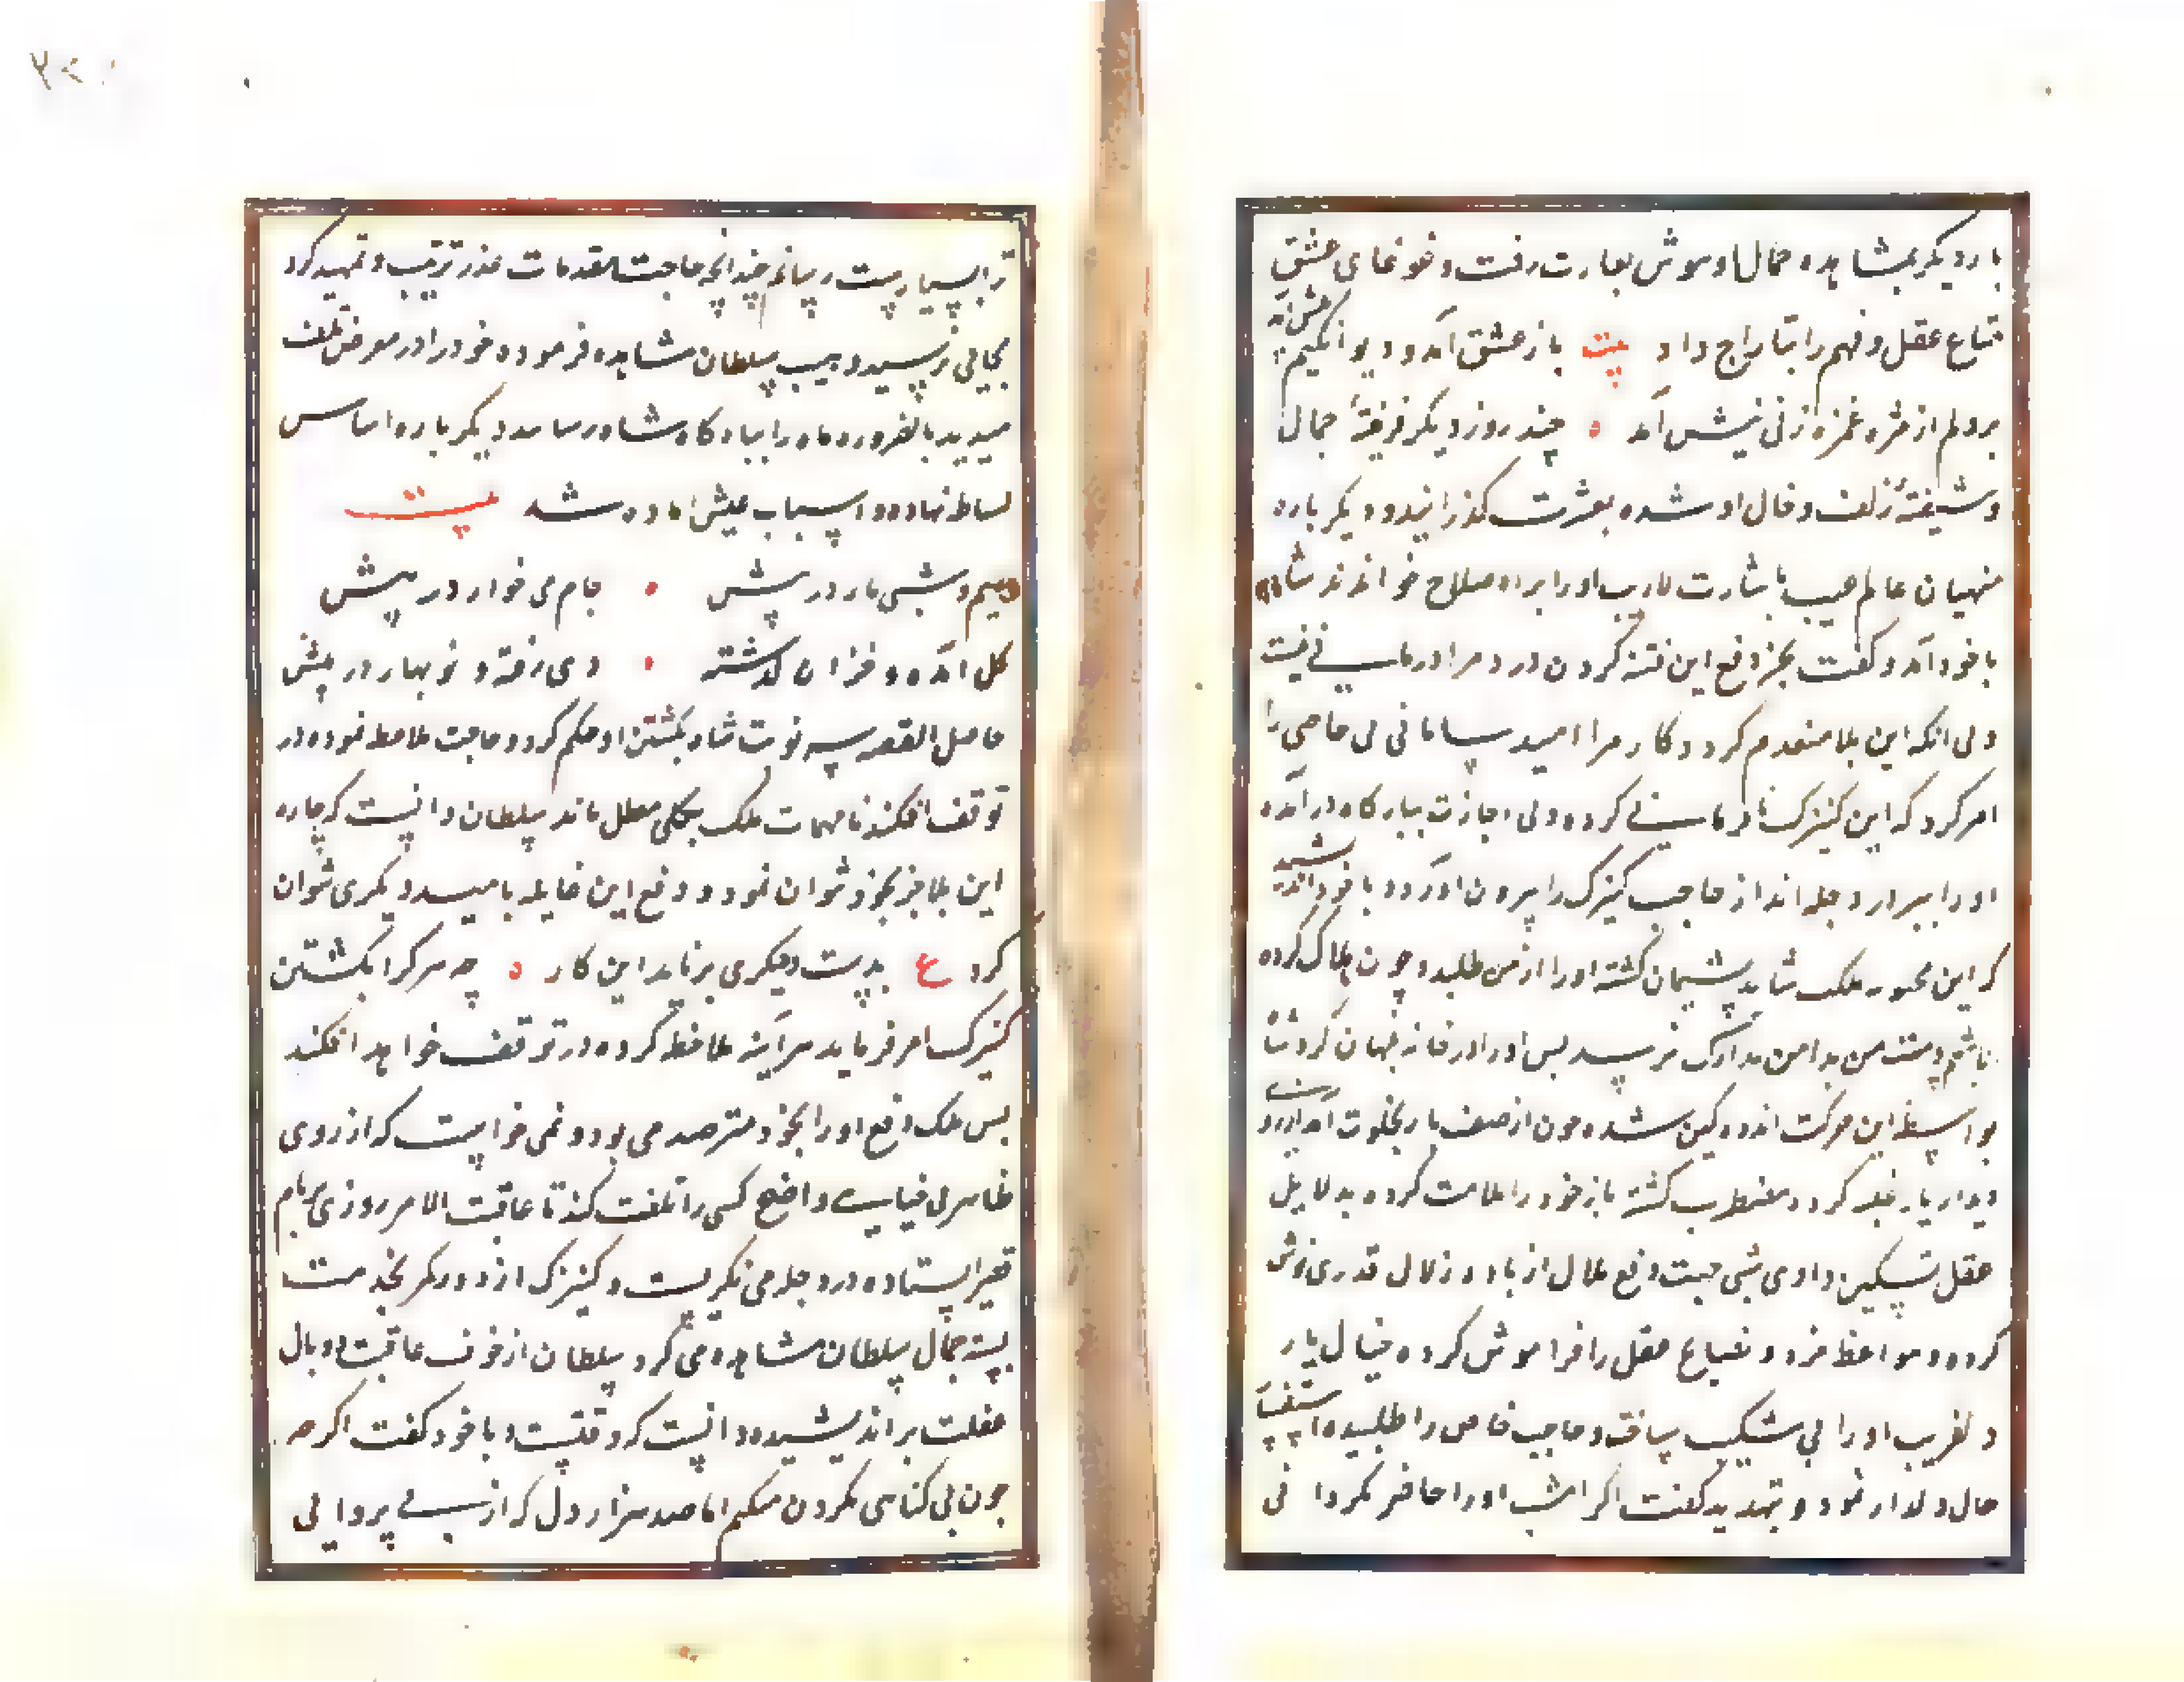 بار دیگر بمشاهده جمال او هوش بغارت رفت و غوغای عشق
متاع عقل و فهم را بتاراج داد بیت باز عشق آمد و دیوانکیم پیش آمد
بر دلم از مژه غمزه زنی نیش آمد چند روز دیکر فریفتهٔ جمال
و شیفتهٔ زلف و خال او شده بعشرت کذرانید و دیکر باره
منهیان عالم غیب باشارت لاریب او را براه صلاح خواندند شاه
با خود آمد و کفت بجز دفع این فتنه کردن درد مرا درمانی نیست
و بی انکه این بلا منعدم کردد کار مرا امید سامانی نی حاجبی را
امر کرد که این کنیزک نافرمانی کرده و بی اجازت ببارکاه درآمده
او را ببر و در دجله انداز حاجب کنیزک را بیرون آورد و با خود اندیشید
که این محبوبه ملک شاید پشیمان کشته او را از من طلبد و چون هلاک کرده
باشم دست من بدامن تدارک نرسد پس او را در خانه پنهان کرد شاه
بواسطه این حرکت اندوهکین شده چون از صف بار بخلوت آمد آرزوی
دیدار یار غلبه کرد و مضطرب کشته باز خود را ملامت کرده بدلایل
عقل تسکین دادی شبی جهت دفع ملال از باده زلال قدری نوش
کرده و مواعظ خرد و نصایح عقل را فراموش کرده خیال یار
دلفریب او را بی شکیب ساخت و حاجب خاص را طلبیده استفسار
حال دلدار نمود و بتهدید کفت اکر امشب او را حاضر نکردانی
ترا بسیاست رسانم چندانچه حاجت مقدمات عذر ترتیب و تمهید کرد
بجایی نرسید و هیبت سلطان مشاهده فرموده خود را در معرض تلف
میدید بالضروره ماه را ببارکاه شاه رسانید دیکر باره اساس
بساط نهاده و اسباب عیش آماده شد بیت
دیدیم و شبی یار در پیش جام می خوار در پیش
کل آمده و خزان کذشته دی رفته و نوبهار در پیش
حاصل القصه سه نوبت شاه بکشتن او حکم کرد و حاجب ملاحظه نموده در
توقف افکند تا مهمات ملک بکلی معطل ماند سلطان دانست که چاره
این بلا جز بخود نتوان نمود و دفع این غایله بامید دیکری نتوان
کرد ع بدست دیکری برناید این کار چه هر کرا بکشتن
کنیزک امر فرماید هرآینه ملاحظه کرده در توقف خواهد افکند
پس ملک دفع او را بخود مترصد می بود و نمی خواست که از روی
ظاهر بی خیانتی واضح کسی را تلف کند تا عاقبت الامر روزی بر بام
قصر ایستاده در دجله می نکریست و کنیزک از دور کمر بخدمت
بسته جمال سلطان مشاهده می کرد سلطان از خوف عاقبت و وبال
غفلت براندیشیده دانست که وقتست و با خود کفت اکر چه
خون بی کناهی بکردن میکیرم اما صد هزار دل که از سب بی پروایی